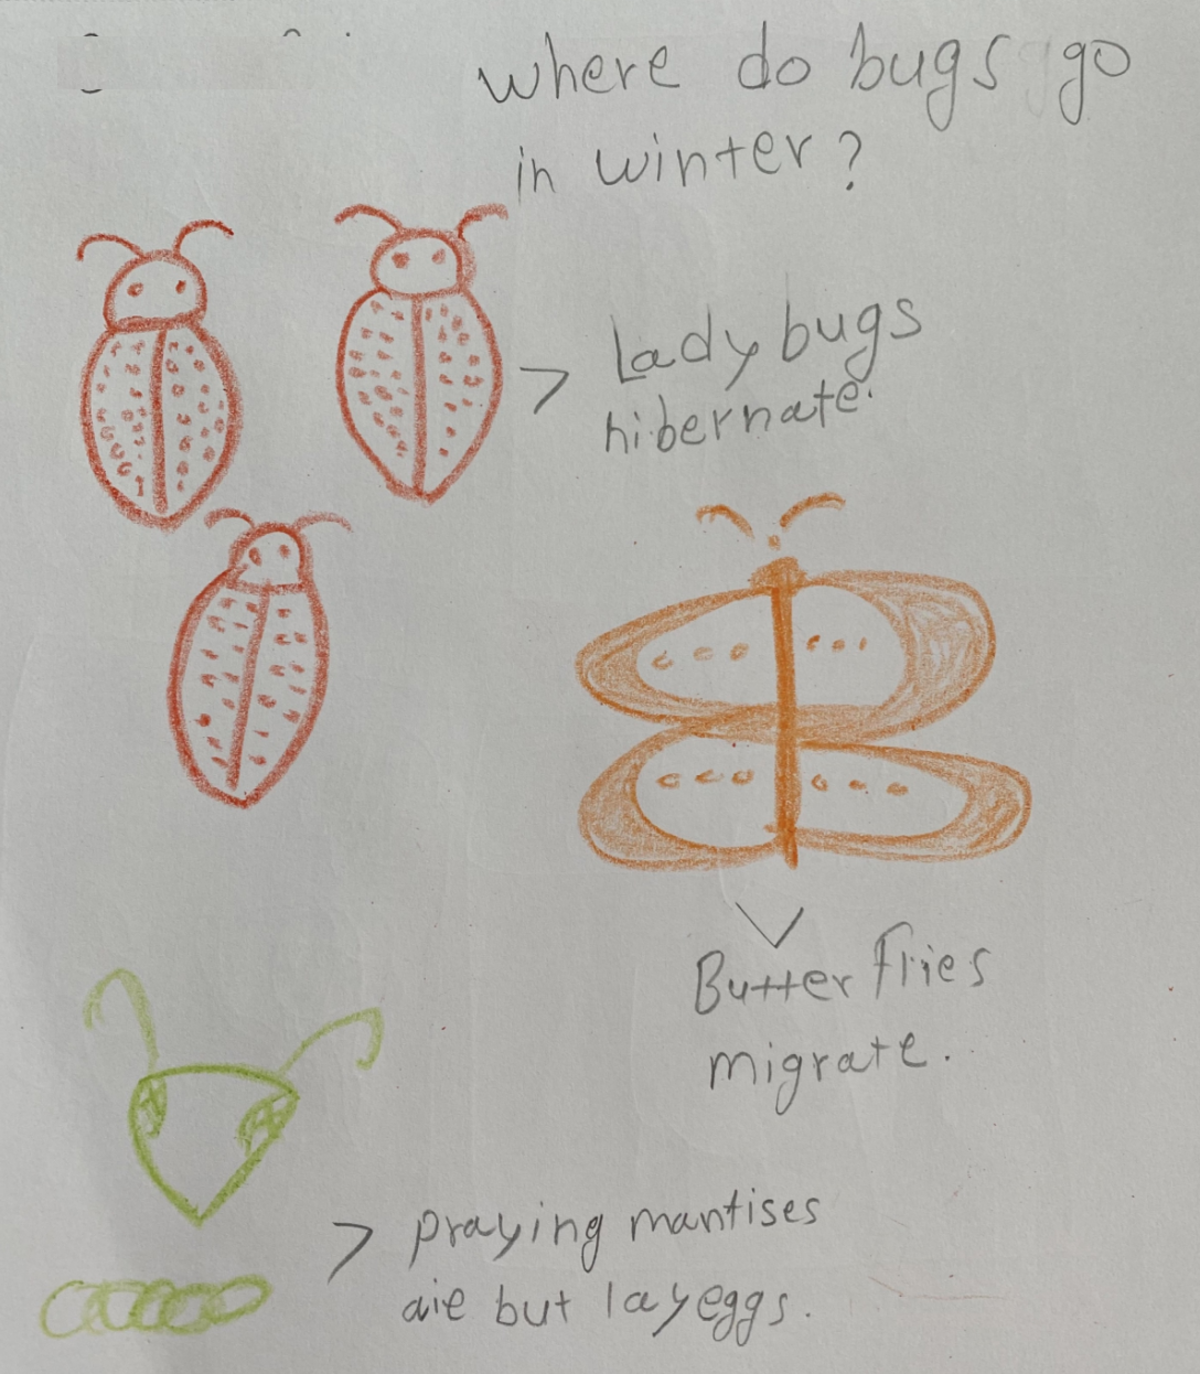 where do bugs go
in winter?
Ladybugs
hibernate.
Butterflies
migrate.
praying mantises
die but lay eggs.